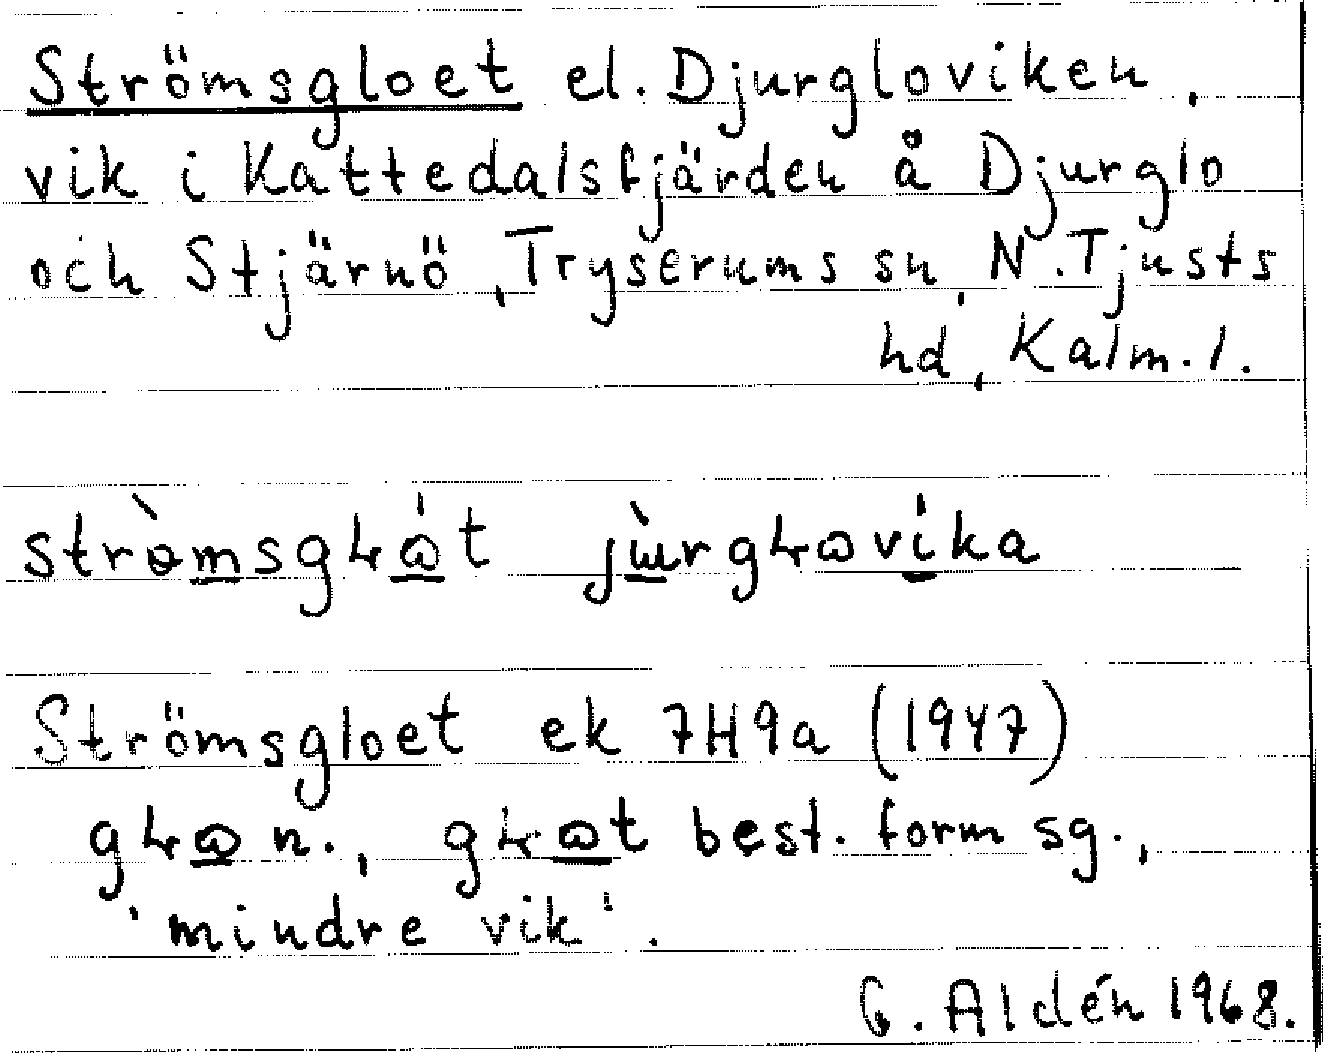 Strömsgloet el. Djurgloviken,
vik i Kattedalsfjärden å Djurglo
och Stjärnö, Tryserums sn, N. Tjusts
hd, Kalm. l.
Strömsgloet ek 7H9a (1947)
n., best. form sg.,
'mindre vik'.
G. Aldén 1968.